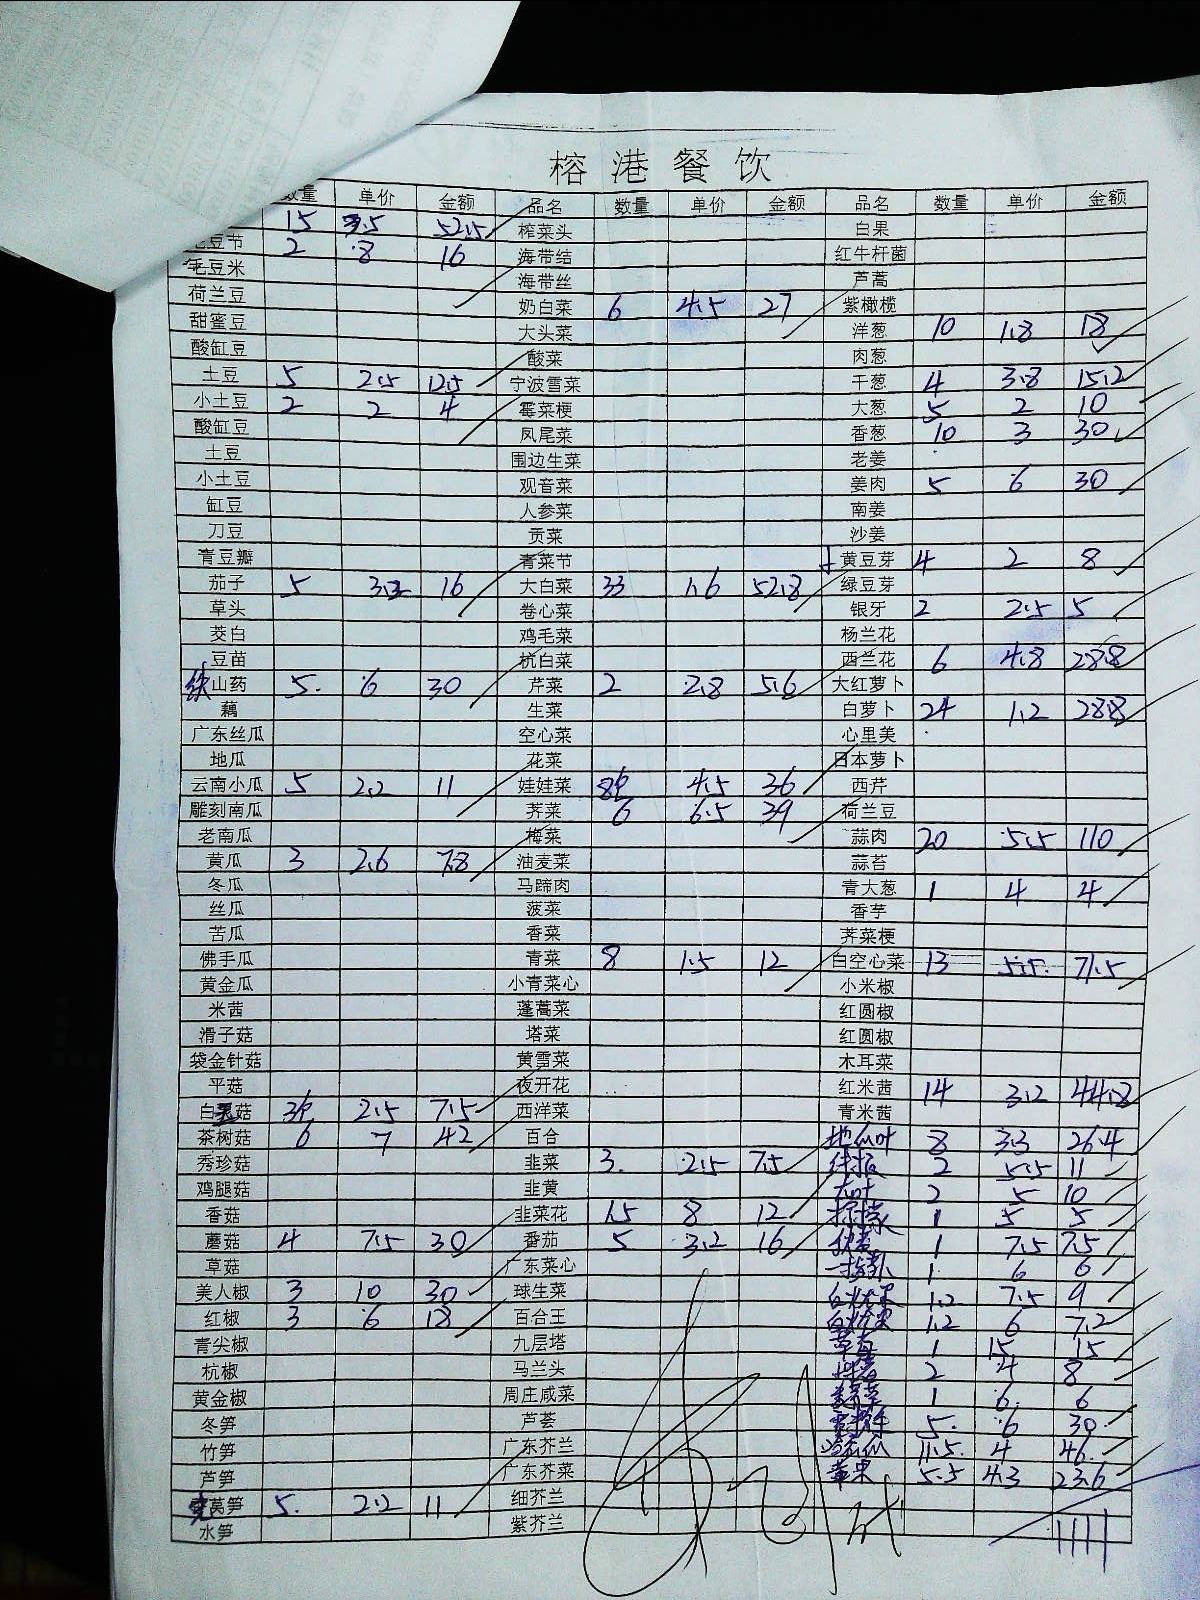 榕港餐饮
数量 单价 金额 品名 数量 单价 金额 品名 数量 单价 金额
15 3.5 52.5 榨菜头 白果
毛豆节 2 8 16 海带结 红牛杆菌
毛豆米 海带丝 芦蒿
荷兰豆 奶白菜 6 4.5 27 紫橄榄
甜蜜豆 大头菜 洋葱 10 1.8 18
酸缸豆 酸菜 肉葱
土豆 5 2.5 12.5 宁波雪菜 干葱 4 3.8 15.2
小土豆 2 2 4 霉菜梗 大葱 5 2 10
酸缸豆 凤尾菜 香葱 10 3 30
土豆 围边生菜 老姜
小土豆 观音菜 姜肉 5 6 30
缸豆 人参菜 南姜
刀豆 贡菜 沙姜
青豆瓣 青菜节 黄豆芽 4 2 8
茄子 5 3.2 16 大白菜 33 1.6 52.8 绿豆芽
草头 卷心菜 银牙 2 2.5 5
茭白 鸡毛菜 杨兰花
豆苗 杭白菜 西兰花 6 4.8 28.8
铁山药 5. 6 30 芹菜 2 2.8 5.6 大红萝卜
藕 生菜 白萝卜 24 1.2 28.8
广东丝瓜 空心菜 心里美
地瓜 花菜 日本萝卜
云南小瓜 5 2.2 11 娃娃菜 8包 4.5 36 西芹
雕刻南瓜 荠菜 6 6.5 39 荷兰豆
老南瓜 梅菜 蒜肉 20 5.5 110
黄瓜 3 2.6 7.8 油麦菜 蒜苔
冬瓜 马蹄肉 青大葱 1 4 4
丝瓜 菠菜 香芋
苦瓜 香菜 荠菜梗
佛手瓜 青菜 8 1.5 12 白空心菜 13 5.5 71.5
黄金瓜 小青菜心 小米椒
米茜 蓬蒿菜 红圆椒
滑子菇 塔菜 红圆椒
袋金针菇 黄雪菜 木耳菜
平菇 夜开花 红米茜 14 3.2 44.8
白玉菇 3包 2.5 7.5 西洋菜 青米茜
茶树菇 6 7 42 百合 地瓜叶 8 3.3 26.4
秀珍菇 韭菜 3. 2.5 7.5 2 5.5 11
鸡腿菇 韭黄 2 5 10
香菇 韭菜花 1.5 8 12 1 5 5
蘑菇 4 7.5 30 番茄 5 3.2 16 1 7.5 7.5
草菇 广东菜心 1 6 6
美人椒 3 10 30 球生菜 1.2 7.5 9
红椒 3 6 18 百合王 1.2 6 7.2
青尖椒 九层塔 草莓 1 15 15
杭椒 马兰头 2 4 8
黄金椒 周庄咸菜 1 6 6
冬笋 芦荟 5. 6 30
竹笋 广东芥兰 11.5 4 46
芦笋 广东芥菜 5.5 4.3 23.6
莴笋 5. 2.2 11 细芥兰
水笋 紫芥兰